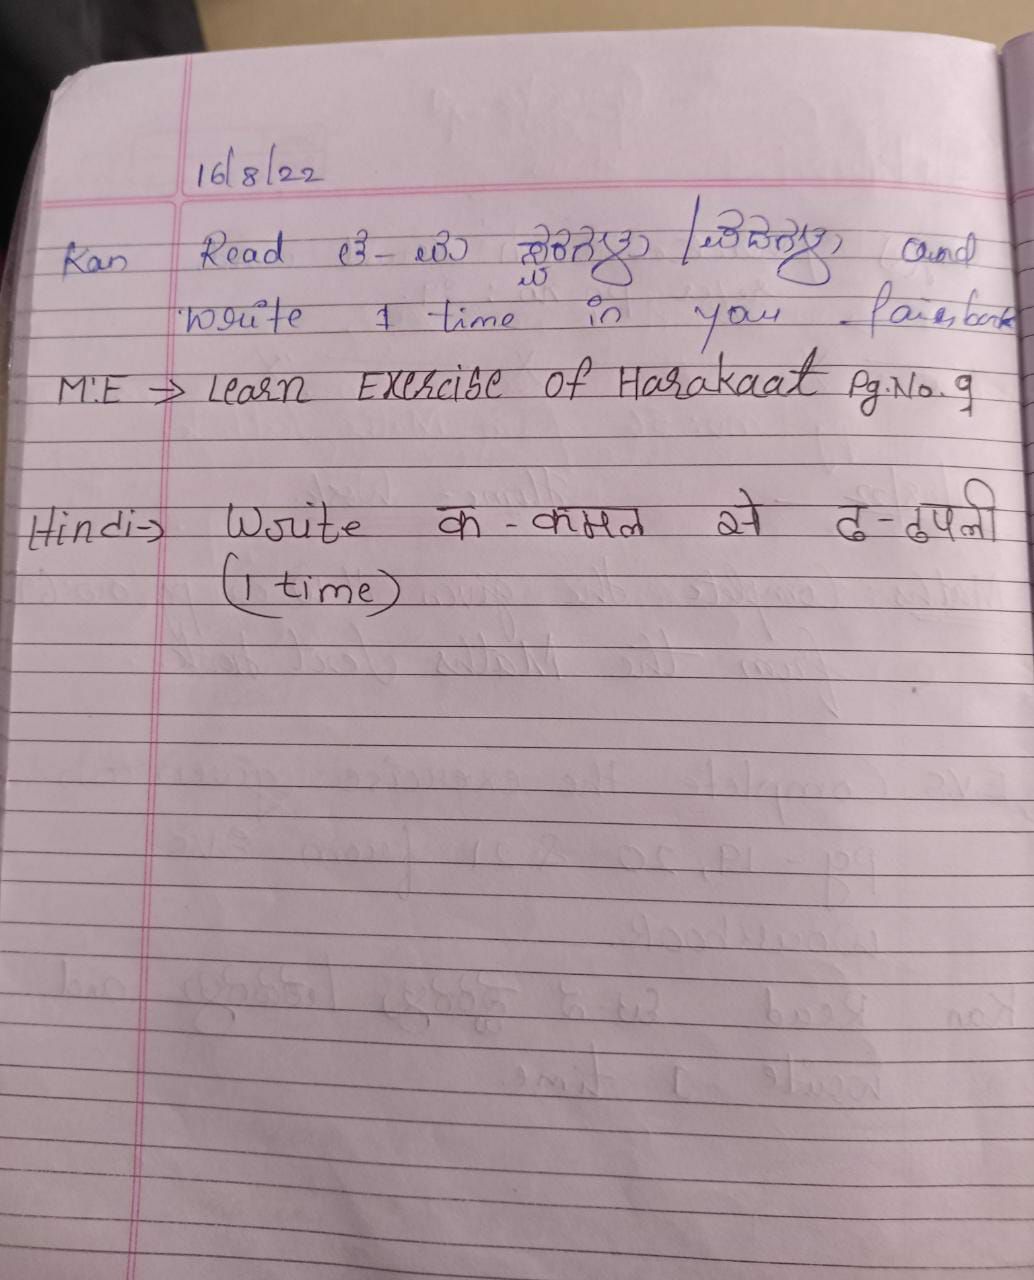 16/8/22
Kan Read and
write 1 time in your
M.E → Learn Exercise of Harakaat Pg.No.9
Hindi→ Write क - कमल से ढ-ढपली
(1 time)